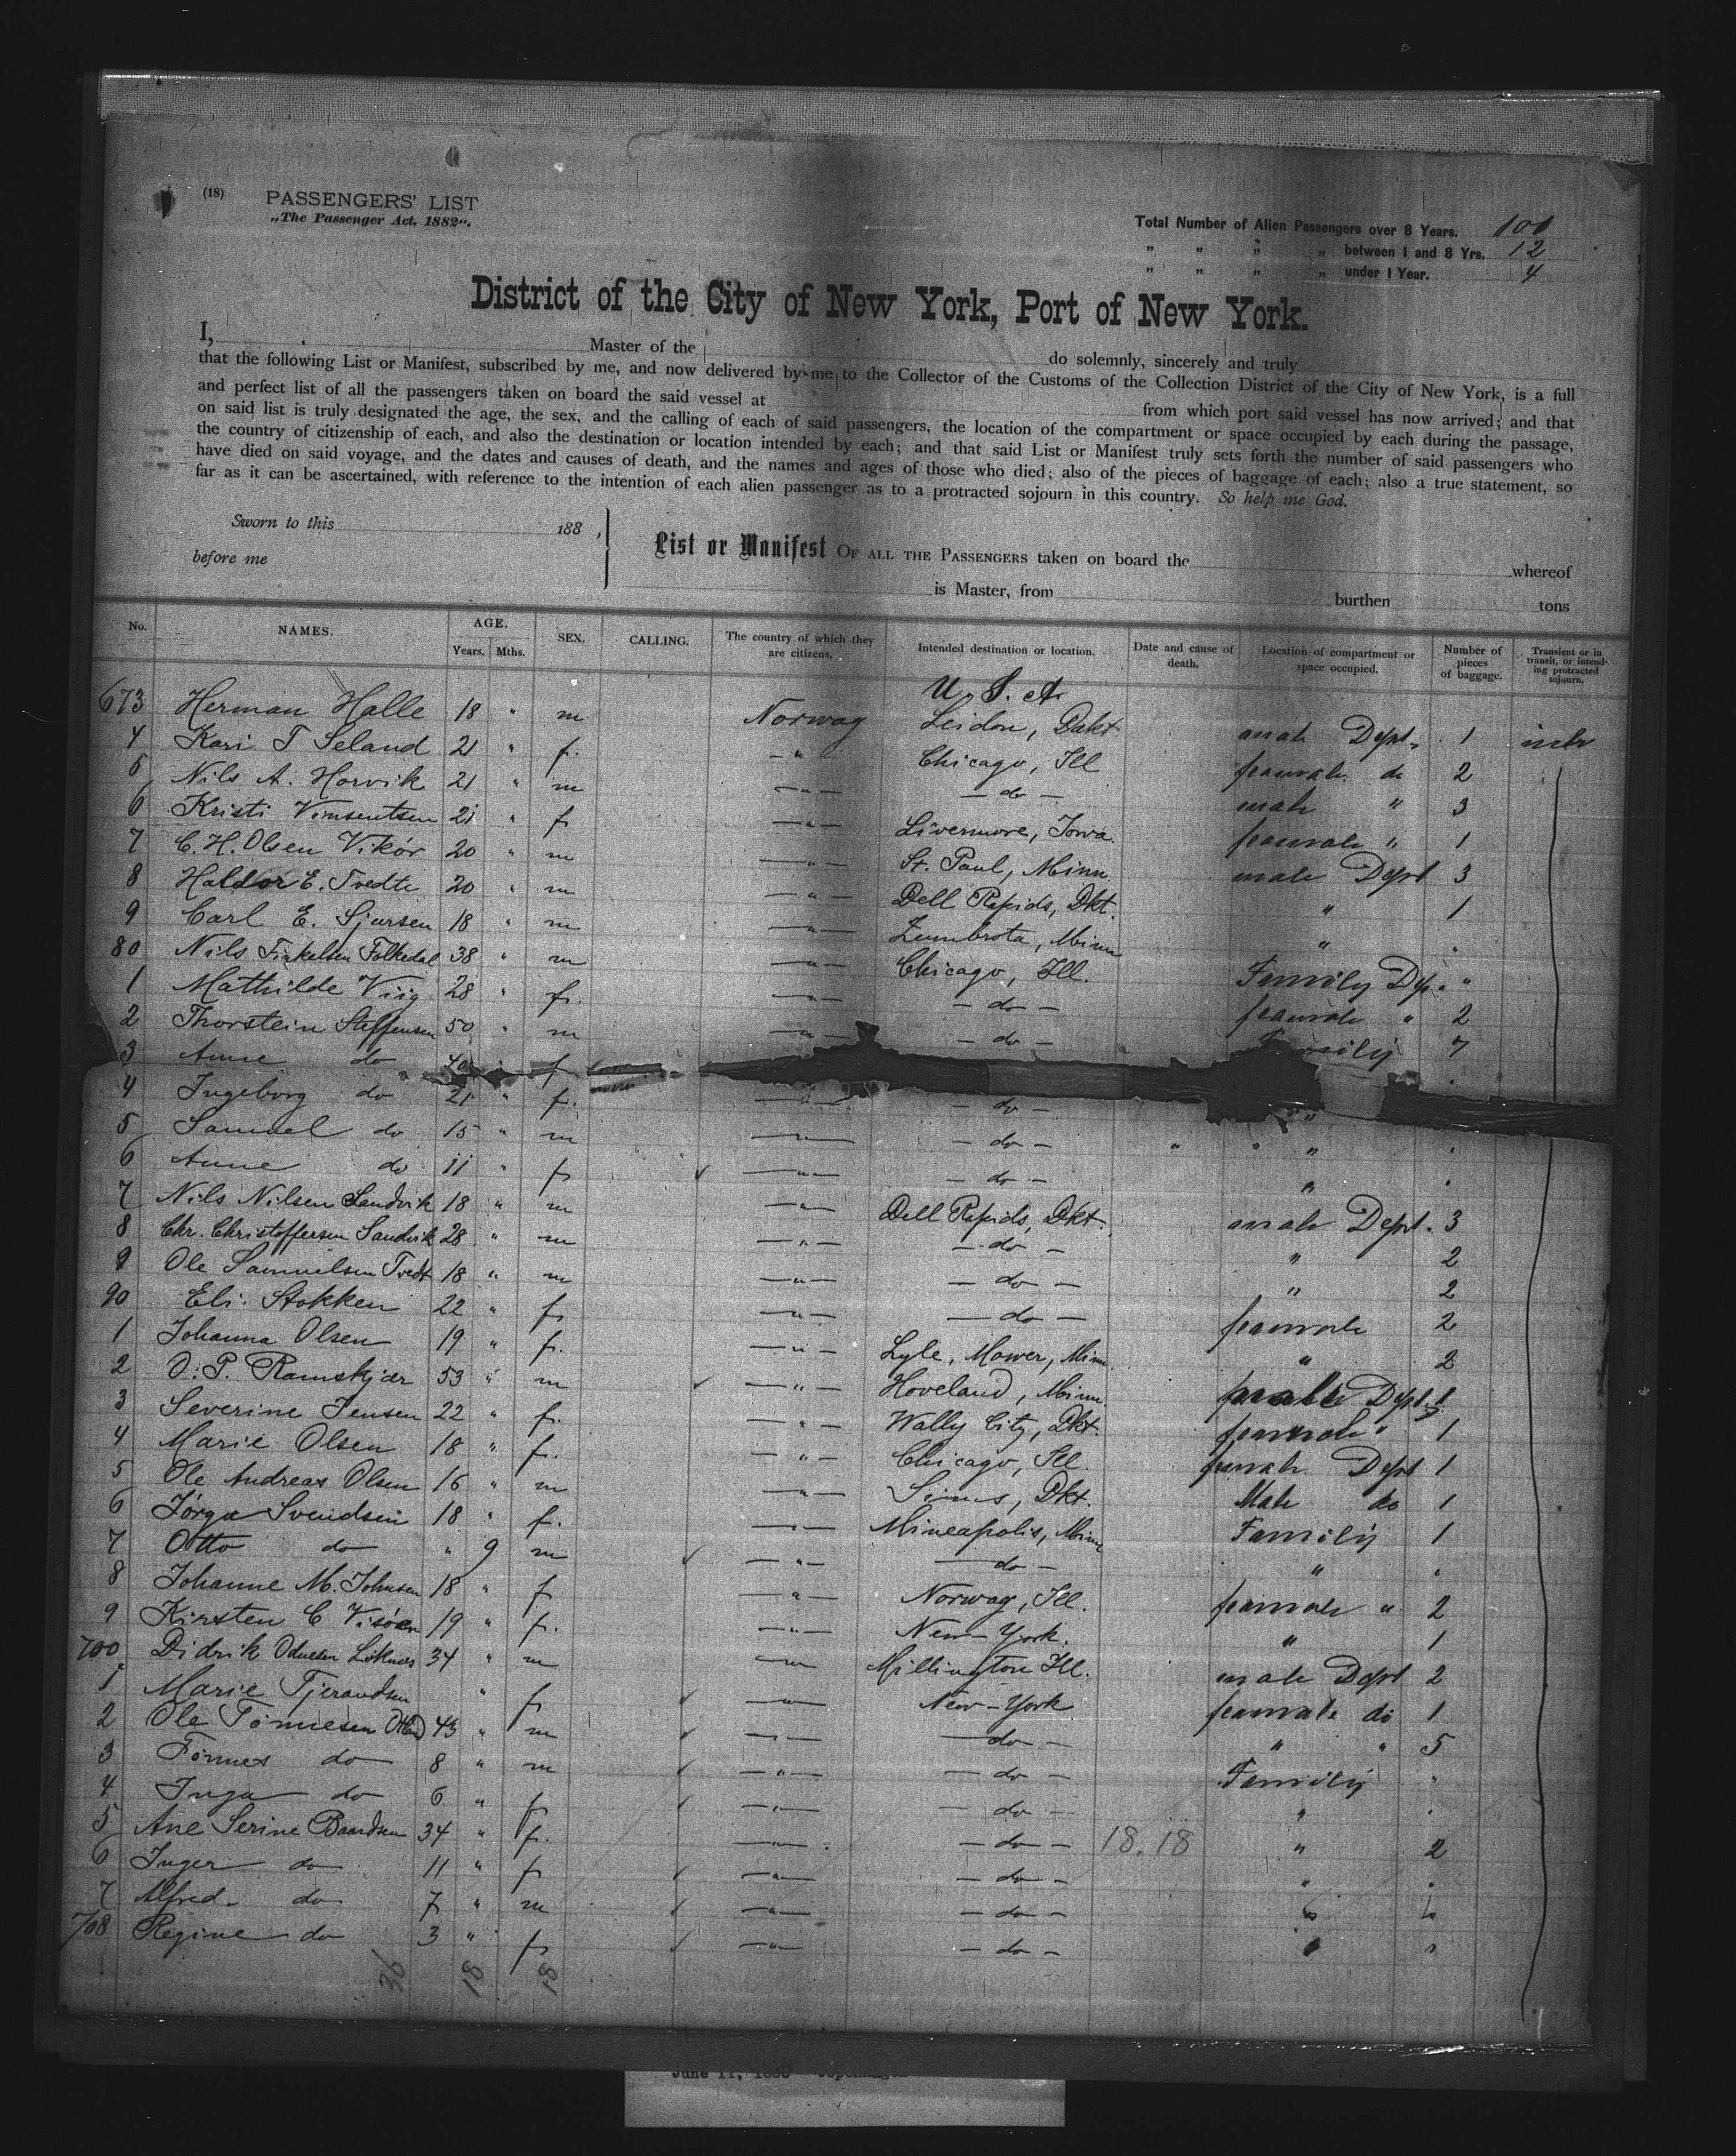 (18) PASSENGERS' LIST
„The Passenger Act, 1882".
Total Number of Alien Passengers over 8 Years. 101
„ „ „ „ between 1 and 8 Yrs. 12
„ „ „ „ under 1 Year. 4
District of the City of New York, Port of New York.
I, Master of the do solemnly, sincerely and truly
that the following List or Manifest, subscribed by me, and now delivered by me to the Collector of the Customs of the Collection District of the City of New York, is a full
and perfect list of all the passengers taken on board the said vessel at from which port said vessel has now arrived; and that
on said list is truly designated the age, the sex, and the calling of each of said passengers, the location of the compartment or space occupied by each during the passage,
the country of citizenship of each, and also the destination or location intended by each; and that said List or Manifest truly sets forth the number of said passengers who
have died on said voyage, and the dates and causes of death, and the names and ages of those who died; also of the pieces of baggage of each; also a true statement, so
far as it can be ascertained, with reference to the intention of each alien passenger as to a protracted sojourn in this country. So help me God.
Sworn to this 188 ,
before me
List or Manifest OF ALL THE PASSENGERS taken on board the whereof
is Master, from burthen tons
No. NAMES. AGE. Years. Mths. SEX. CALLING. The country of which they are citizens. Intended destination or location. Date and cause of death. Location of compartment or space occupied. Number of pieces of baggage. Transient or in transit, or intending protracted sojourn.
U. S. A.
673 Herman Halle 18 " m Norway Leidon, Dakt. male Dept. 1
4 Kari T Seland 21 " f. — " — Chicago, Ill do 2
5 Nils A. Horvik 21 " m — " — — do — male " 3
6 Kristi Vinsentsen 21 " f — " — Livermore, Iowa " 1
7 C. H. Olsen Vikör 20 " m — " — St. Paul, Minn male Dept 3
8 Haldor E. Tvedte 20 " m — " — Dell Rapids, Dkt. " 1
9 Carl E. Sjursen 18 " m — " — Zumbrota, Minn " "
80 Nils Folkedal 38 " m — " — Chicago, Ill. Family Dep. "
1 Mathilde Viig 28 " f. — " — — do — " 2
2 Thorstein Steffensen 50 " m — " — — do — Family 7
3 Anne do 40 f
4 Ingeborg do 21 " f. — " — — do — "
5 Samuel do 15 " m — " — — do — " "
6 Anne do 11 " f — " — — do — " "
7 Nils Nilsen Sandvik 18 " m — " — Dell Rapids, Dkt. male Dept. 3
8 Chr. Christoffersen Sandvik 28 " m — " — — do — " 2
9 Ole Samuelsen Tvedt 18 " m — " — — do — " 2
90 Eli Stokken 22 " f — " — — do — 2
1 Johanna Olsen 19 " f. — " — Lyle, Mower, Minn " 2
2 O. P. Ramskjær 53 " m — " — Hoveland, Minn. male Dept
3 Severine Jensen 22 " f. — " — Wally City, Dkt. " 1
4 Marie Olsen 18 " f. — " — Chicago, Ill. Dept 1
5 Ole Andreas Olsen 16 " m — " — Sims, Dkt. Male do 1
6 Jörga Svendsen 18 " f. — " — Mineapolis, Minn Family 1
7 Otto do " 9 m — " — — do — " "
8 Johanne M. Johnsen 18 " f — " — Norway, Ill. " 2
9 Kirsten C 19 " f. — " — New-York. " 1
700 Didrik Odnesen Löknes 34 " m — " — Millington Ill. male Dept 2
1 Marie Tjerandsen " f — " — New-York do 1
2 Ole Tönnesen 43 " m — " — — do — " " 5
3 Tönnes do 8 " m — " — — do — Family "
4 Inga do 6 " f — " — — do — " "
5 Ane Serine Baardsen 34 " f. — " — — do — 18. 18 " 2
6 Inger do 11 " f — " — — do — " "
7 Alfred do 7 " m — " — — do —
708 Regine do 3 " f — " — — do — "
36 18 18